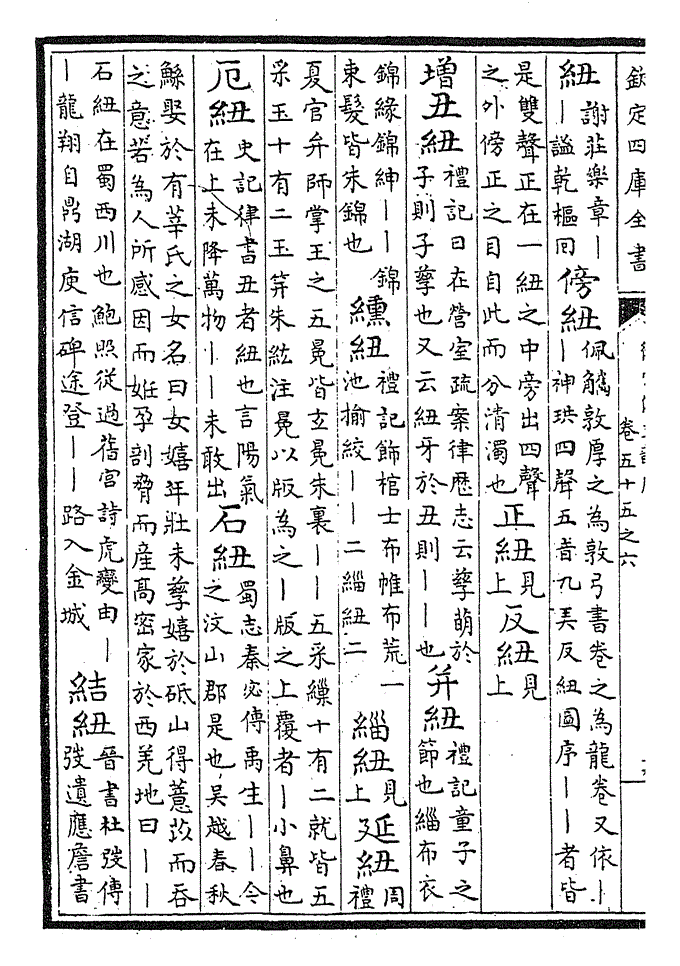 欽定四庫全書
卷五十五之六
紐謝莊樂章丨
丨謐乾樞回
傍紐佩觿敦厚之為敦弓書卷之為龍卷又依丨
丨神珙四聲五音九弄反紐圖序丨丨者皆
是雙聲正在一紐之中旁出四聲
之外傍正之目自此而分清濁也
正紐見
上
反紐見
上
增丑紐禮記日在營室疏案律厯志云孳萌於
子則子孳也又云紐牙於丑則丨丨也
并紐禮記童子之
節也緇布衣
錦緣錦紳丨丨錦
束髮皆朱錦也
纁紐禮記飾棺士布帷布荒一
池揄絞丨丨二緇紐二
緇紐見
上
延紐周
禮
夏官弁師掌王之五冕皆玄冕朱裏丨丨五采繅十有二就皆五
采玉十有二玉笄朱紘注冕以版為之丨版之上覆者丨小鼻也
厄紐史記律書丑者紐也言陽氣
在上未降萬物丨丨未敢出
石紐蜀志秦宓傳禹生丨丨今
之汶山郡是也吳越春秋
鯀娶於有莘氏之女名曰女嬉年壯未孳嬉於砥山得薏苡而吞
之意若為人所感因而姙孕剖脅而産高密家於西羌地曰丨丨
石紐在蜀西川也鮑照從過舊宫詩虎變由丨
丨龍翔自鼎湖庾信碑途登丨丨路入金城
結紐晉書杜弢傳
弢遺應詹書